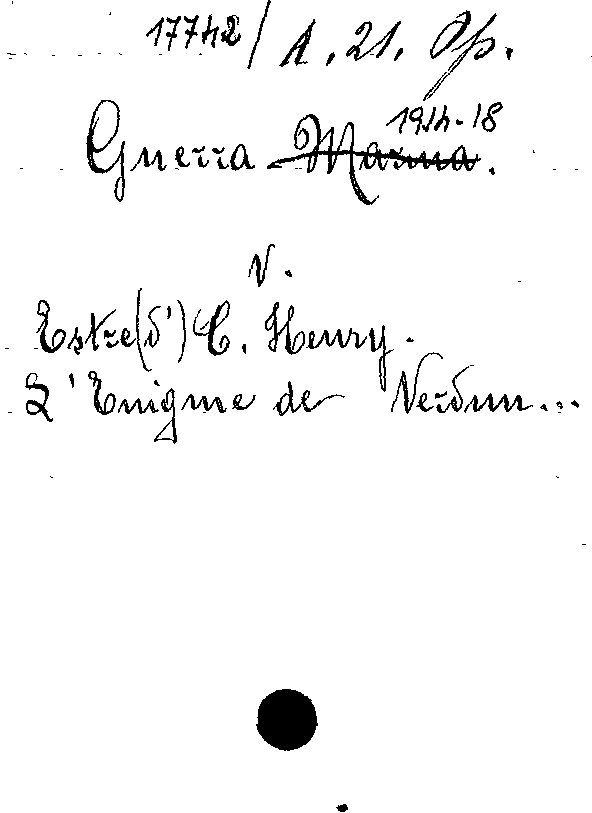 17742/ A. 21. Op.
1914-18
Guerra Marna.
V.
Estre (d') C. Henry.
L'Enigme de Verdun...